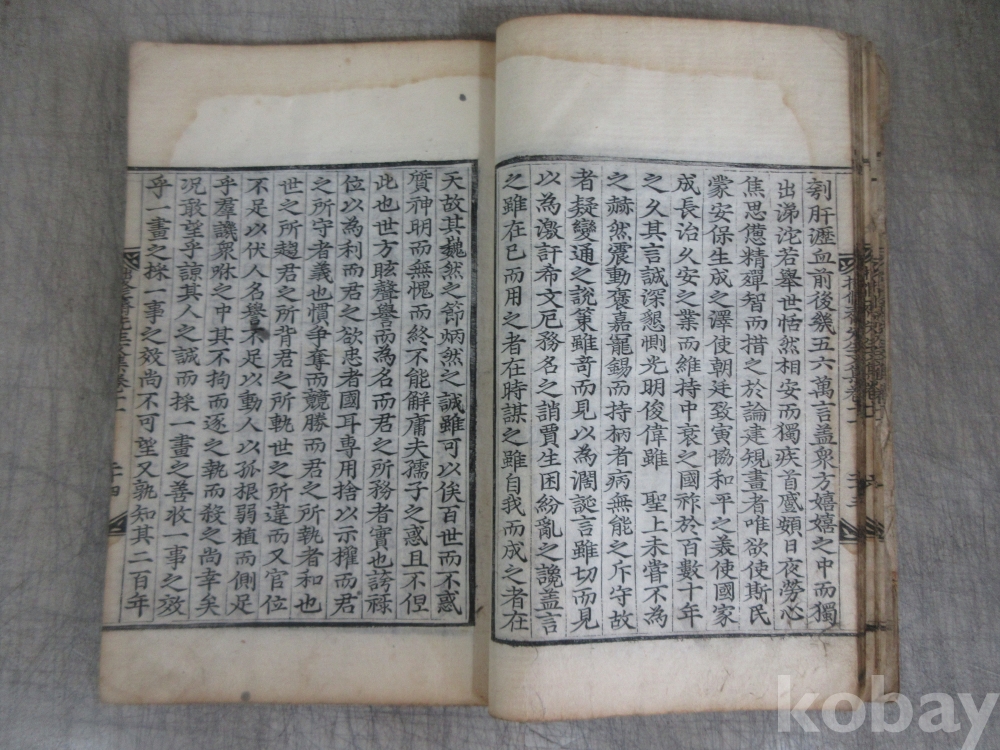 刳肝瀝血前後幾五六萬言盖衆方嬉嬉之中而獨
出涕沱若舉世恬然相安而獨疾首蹙頞日夜勞心
焦思憊精殫智而措之於論建規畫者唯欲使斯民
蒙安保生成之澤使朝廷致寅協和平之美使國家
成長治久安之業而維持中衰之國祚於百數十年
之久其言誠深懇惻光明俊偉雖 聖上未嘗不為
之赫然震動褒嘉寵錫而持柄者病無能之斥守故
者疑變通之說策雖奇而見以為濶誕言雖切而見
以為激訐希文厄務名之誚賈生困紛亂之讒盖言
之雖在已而用之者在時謀之雖自我而成之者在
天故其巍然之節炳然之誠雖可以俟百世而不惑
質神明而無愧而終不能解庸夫孺子之惑且不但
此也世方眩聲譽而為名而君之所務者實也謗祿
位以為利而君之欲忠者國耳専用捨以示權而君
之所守者義也慣争奪而競勝而君之所執者和也
世之所趨君之所背君之所軌世之所違而又官位
不足以伏人名譽不足以動人以孤根弱植而側足
乎羣譏衆咻之中其不拘而逐之執而殺之尚幸矣
况敢望乎諒其人之誠而採一畫之善收一事之效
乎一畫之採一事之效尚不可望又孰知其二百年
二十四
kobay